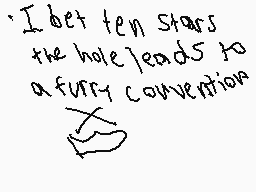 I bet ten stars
the hole leads to
a furry convention